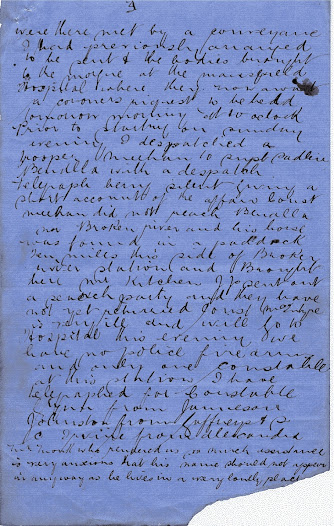 4
were there met by a conveyance
I had previously arranged
to be sent & the bodies brought
to the morgue at the Mansfield
Hospital where they now await
a coroners inquest to be held
tomorrow morning at 10 oclock
Prior to starting on Sunday
evening I despatched a
trooper Meehan to
Benalla with a despatch
telegraph being silent giving a
short account of the affair Const
Meehan did not reach Benalla
or Broken river and his horse
was found in a paddock
Ten miles this side of Broken
river station and Brought
here Mr Kitchen J.P. sent out
a search party and they have
not yet returned Const McIntyre
is very ill and will go to
Hospital this evening we
have no police firearms
and only one Constable
at this station I have
telegraphed for Constable
from Jamieson
Johnston from &
C Irvine from Alexandra
Mr Monk who rendered us so much assistance
is very anxious that his name should not appear
in anyway as he lives in a very lonely place